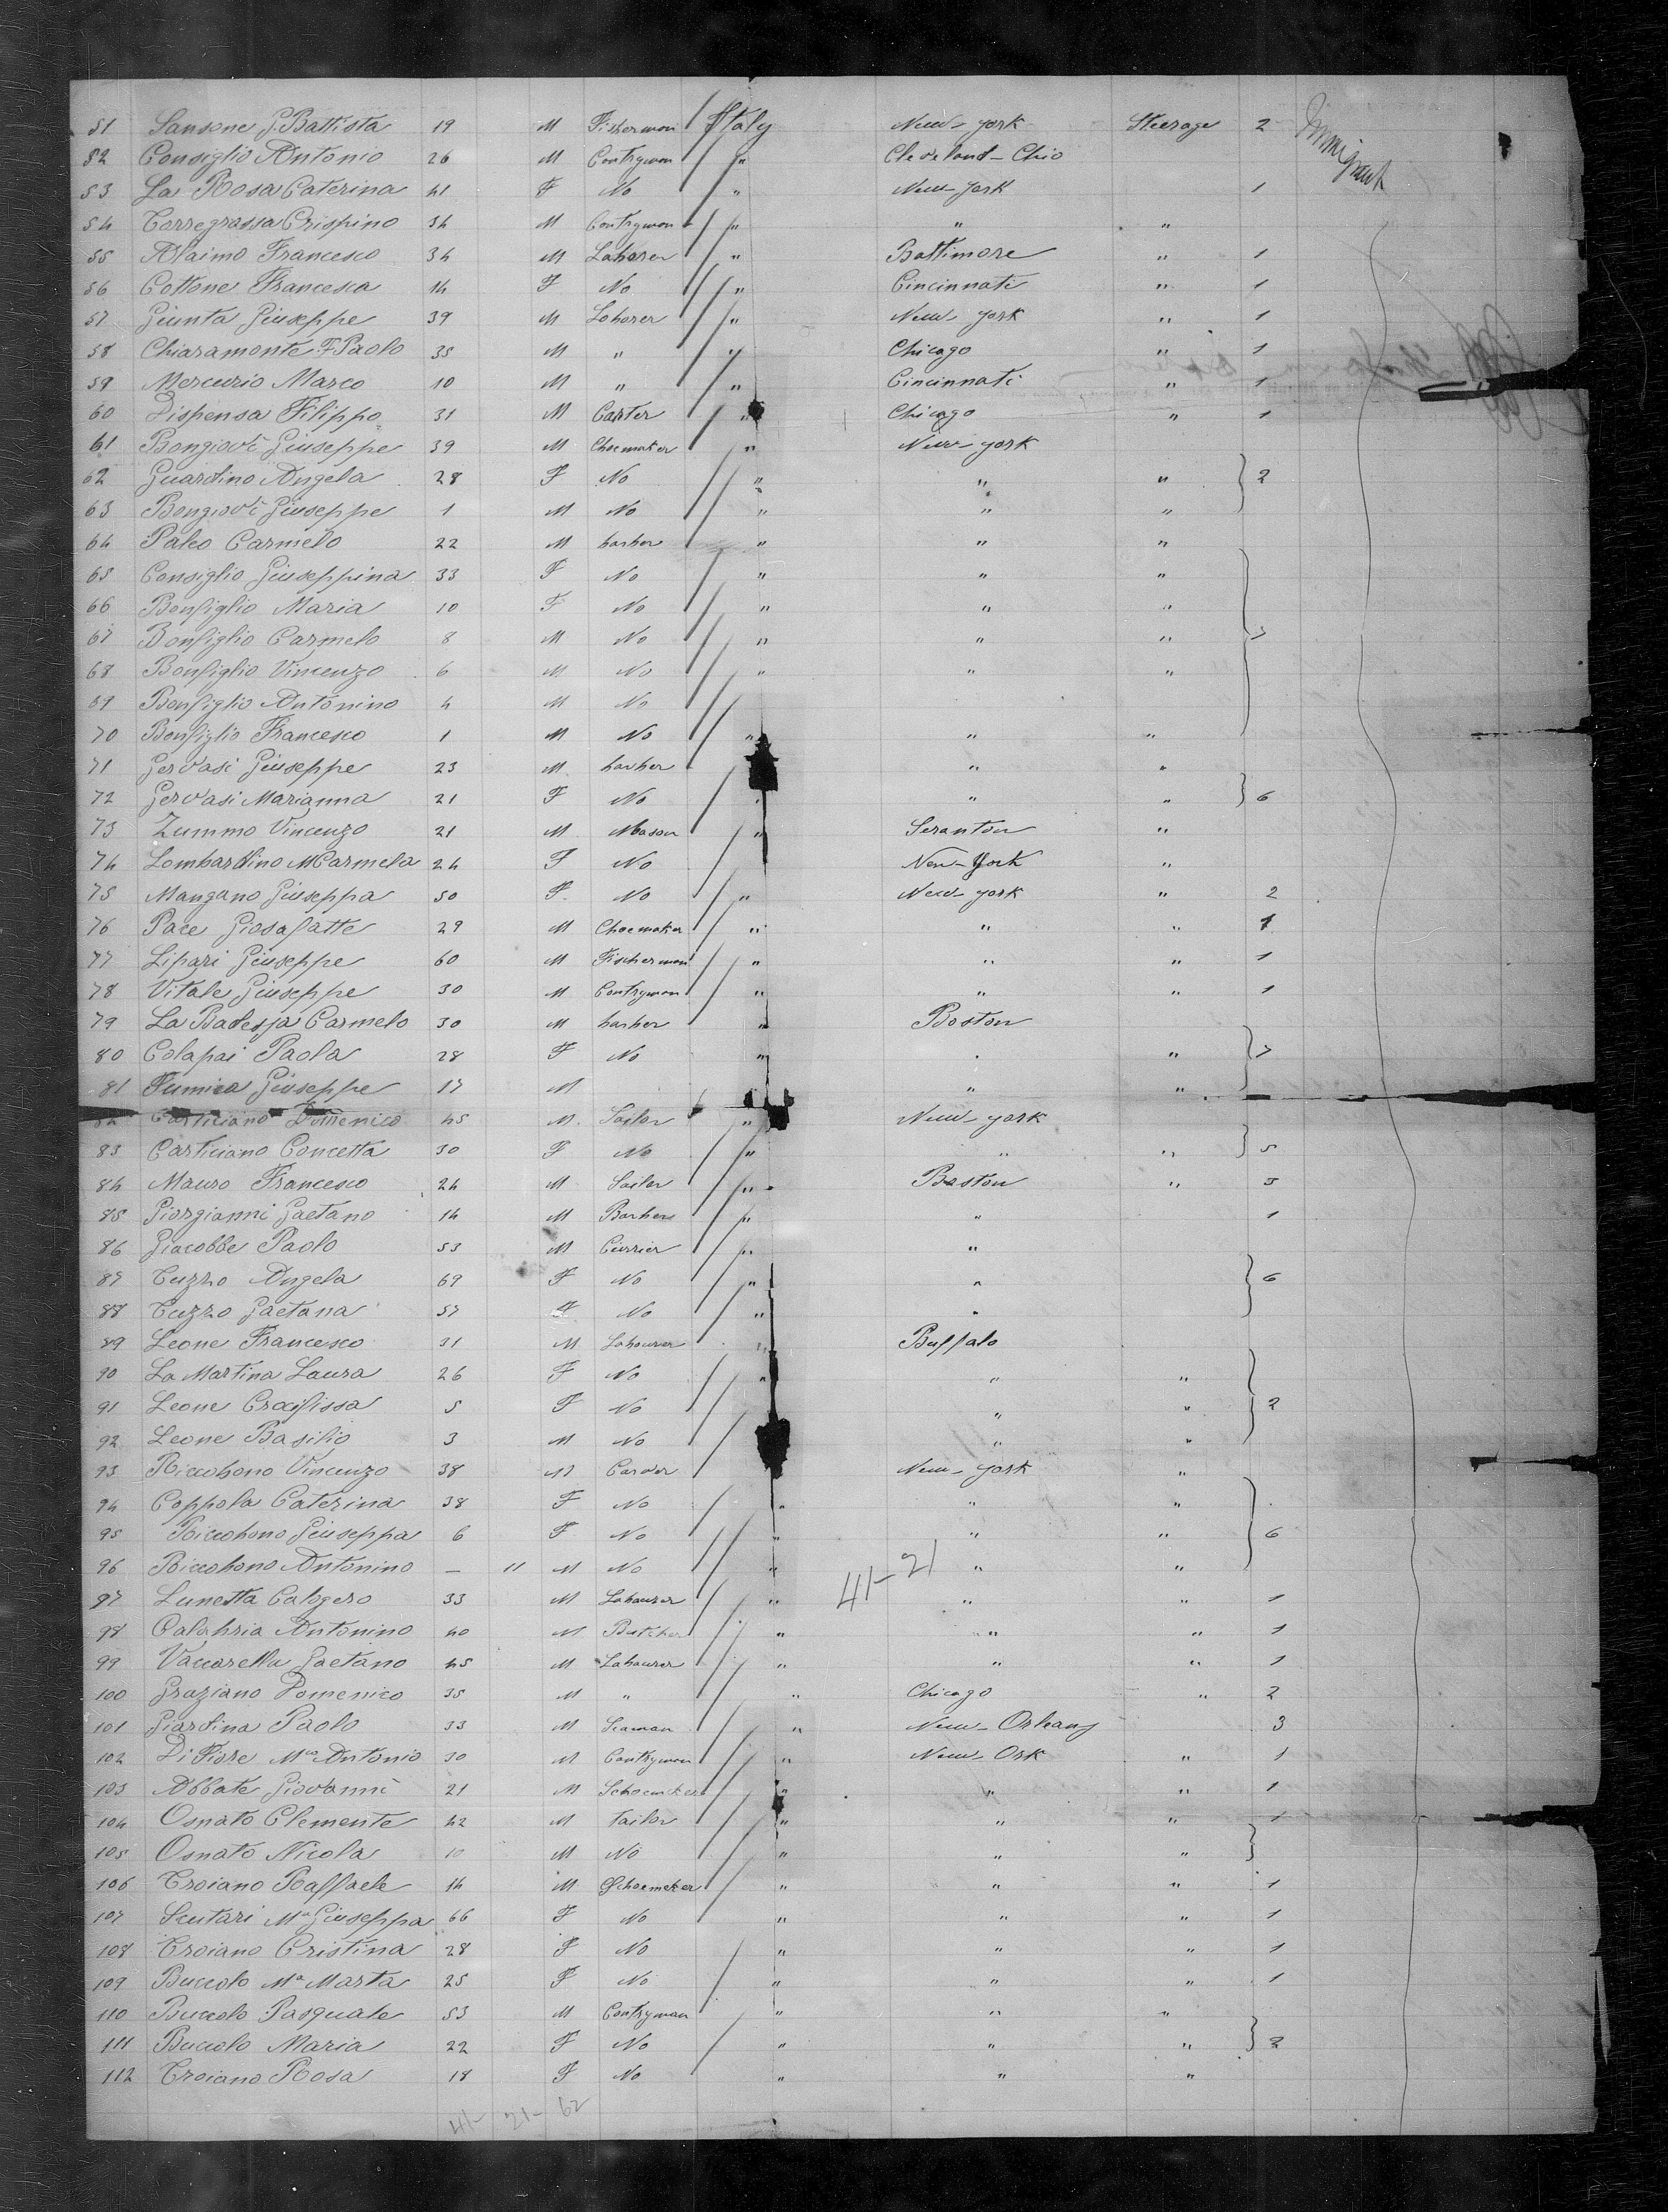 51 Sansone G. Battista 19 M Fisherman Italy New-york Steerage 2 Immigrant
52 Consiglio Antonio 26 M Contryman " Cleveland-Ohio
53 La Rosa Caterina 41 F No " New-york 1
54 Torregrossa Crispino 34 M Contryman " " "
55 Alaimo Francesco 34 M Laborer " Battimore " 1
56 Cottone Francesca 14 F No " Cincinnati " 1
57 Giunta Giuseppe 39 M Loborer " New york " 1
58 Chiaramonte F. Paolo 35 M " " Chicago " 1
59 Mercurio Marco 10 M " " Cincinnati " 1
60 Dispensa Filippo 31 M Carter " Chicago " 1
61 Bongiovi Giuseppe 39 M Choemaker " New-york
62 Guardino Angela 28 F No " " " } 2
63 Bongiovi Giuseppe 1 M No " " "
64 Paleo Carmelo 22 M barber " " "
65 Consiglio Giuseppina 33 F No " " "
66 Bonfiglio Maria 10 F No " " "
67 Bonfiglio Carmelo 8 M No " " " }
68 Bonfiglio Vincenzo 6 M No " " "
69 Bonfiglio Antonino 4 M No
70 Bonfiglio Francesco 1 M No " " "
71 Gervasi Giuseppe 23 M. barber " "
72 Gervasi Marianna 21 F No " " " } 6
73 Zummo Vincenzo 21 M. Mason " Scranton "
74 Lombardino M Carmela 24 F No New-York "
75 Mangano Giuseppa 50 F. No " New-york " 2
76 Pace Giosafatte 29 M Choemaker " " " 1
77 Lipari Giuseppe 60 M Fischerman " " " 1
78 Vitale Giuseppe 30 M Contryman " " " 1
79 La Badessa Carmelo 30 M barber " Boston
80 Colapai Paola 28 F No " " " }
81 Fumica Giuseppe 17 M " "
Carticiano Domenico 45 M. Sailor " New-york
83 Carticiano Concetta 30 F No " " " } 5
84 Mauro Francesco 24 M Sailor " Boston "
85 Giorgianni Gaetano 14 M Barber " " 1
86 Giacobbe Paolo 53 M Currier " "
87 Cuzzo Angela 69 F No " " } 6
88 Cuzzo Gaetana 57 F No " "
89 Leone Francesco 31 M Labourer " Buffalo
90 La Martina Laura 26 F No " " "
91 Leone Crocifissa 5 F No " " } 2
92 Leone Basilio 3 M No " "
93 Riccobono Vincenzo 38 M Carver New-york "
94 Coppola Caterina 38 F No " " "
95 Riccobono Giuseppa 6 F No " " " } 6
96 Riccobono Antonino - 11 M No " 41-21 " "
97 Lunetta Calogero 33 M Labourer " " " 1
98 Calabria Antonino 40 M Butcher " " " 1
99 Vaccarella Gaetano 45 M Labourer " " " 1
100 Graziano Domenico 35 M " " Chicago " 2
101 Giardina Paolo 33 M Seaman " New-Orleans 3
102 Di Fiore Mco Antonio 30 M Contryman " New-Ork " 1
103 Abbate Giovanni 21 M Schoemcker " " " 1
104 Osnato Clemente 42 M tailor " " " 1
105 Osnato Nicola 10 M No " " " }
106 Troiano Raffaele 16 M Schoemeker " " " 1
107 Scutari Ma Giuseppa 66 F No " " " 1
108 Troiano Cristina 28 F No " " " 1
109 Buccolo Ma Marta 25 F No " " " 1
110 Buccolo Pasquale 53 M Contryman " " "
111 Buccolo Maria 22 F No " " " } 2
112 Troiano Rosa 18 F No " " "
41- 21- 62